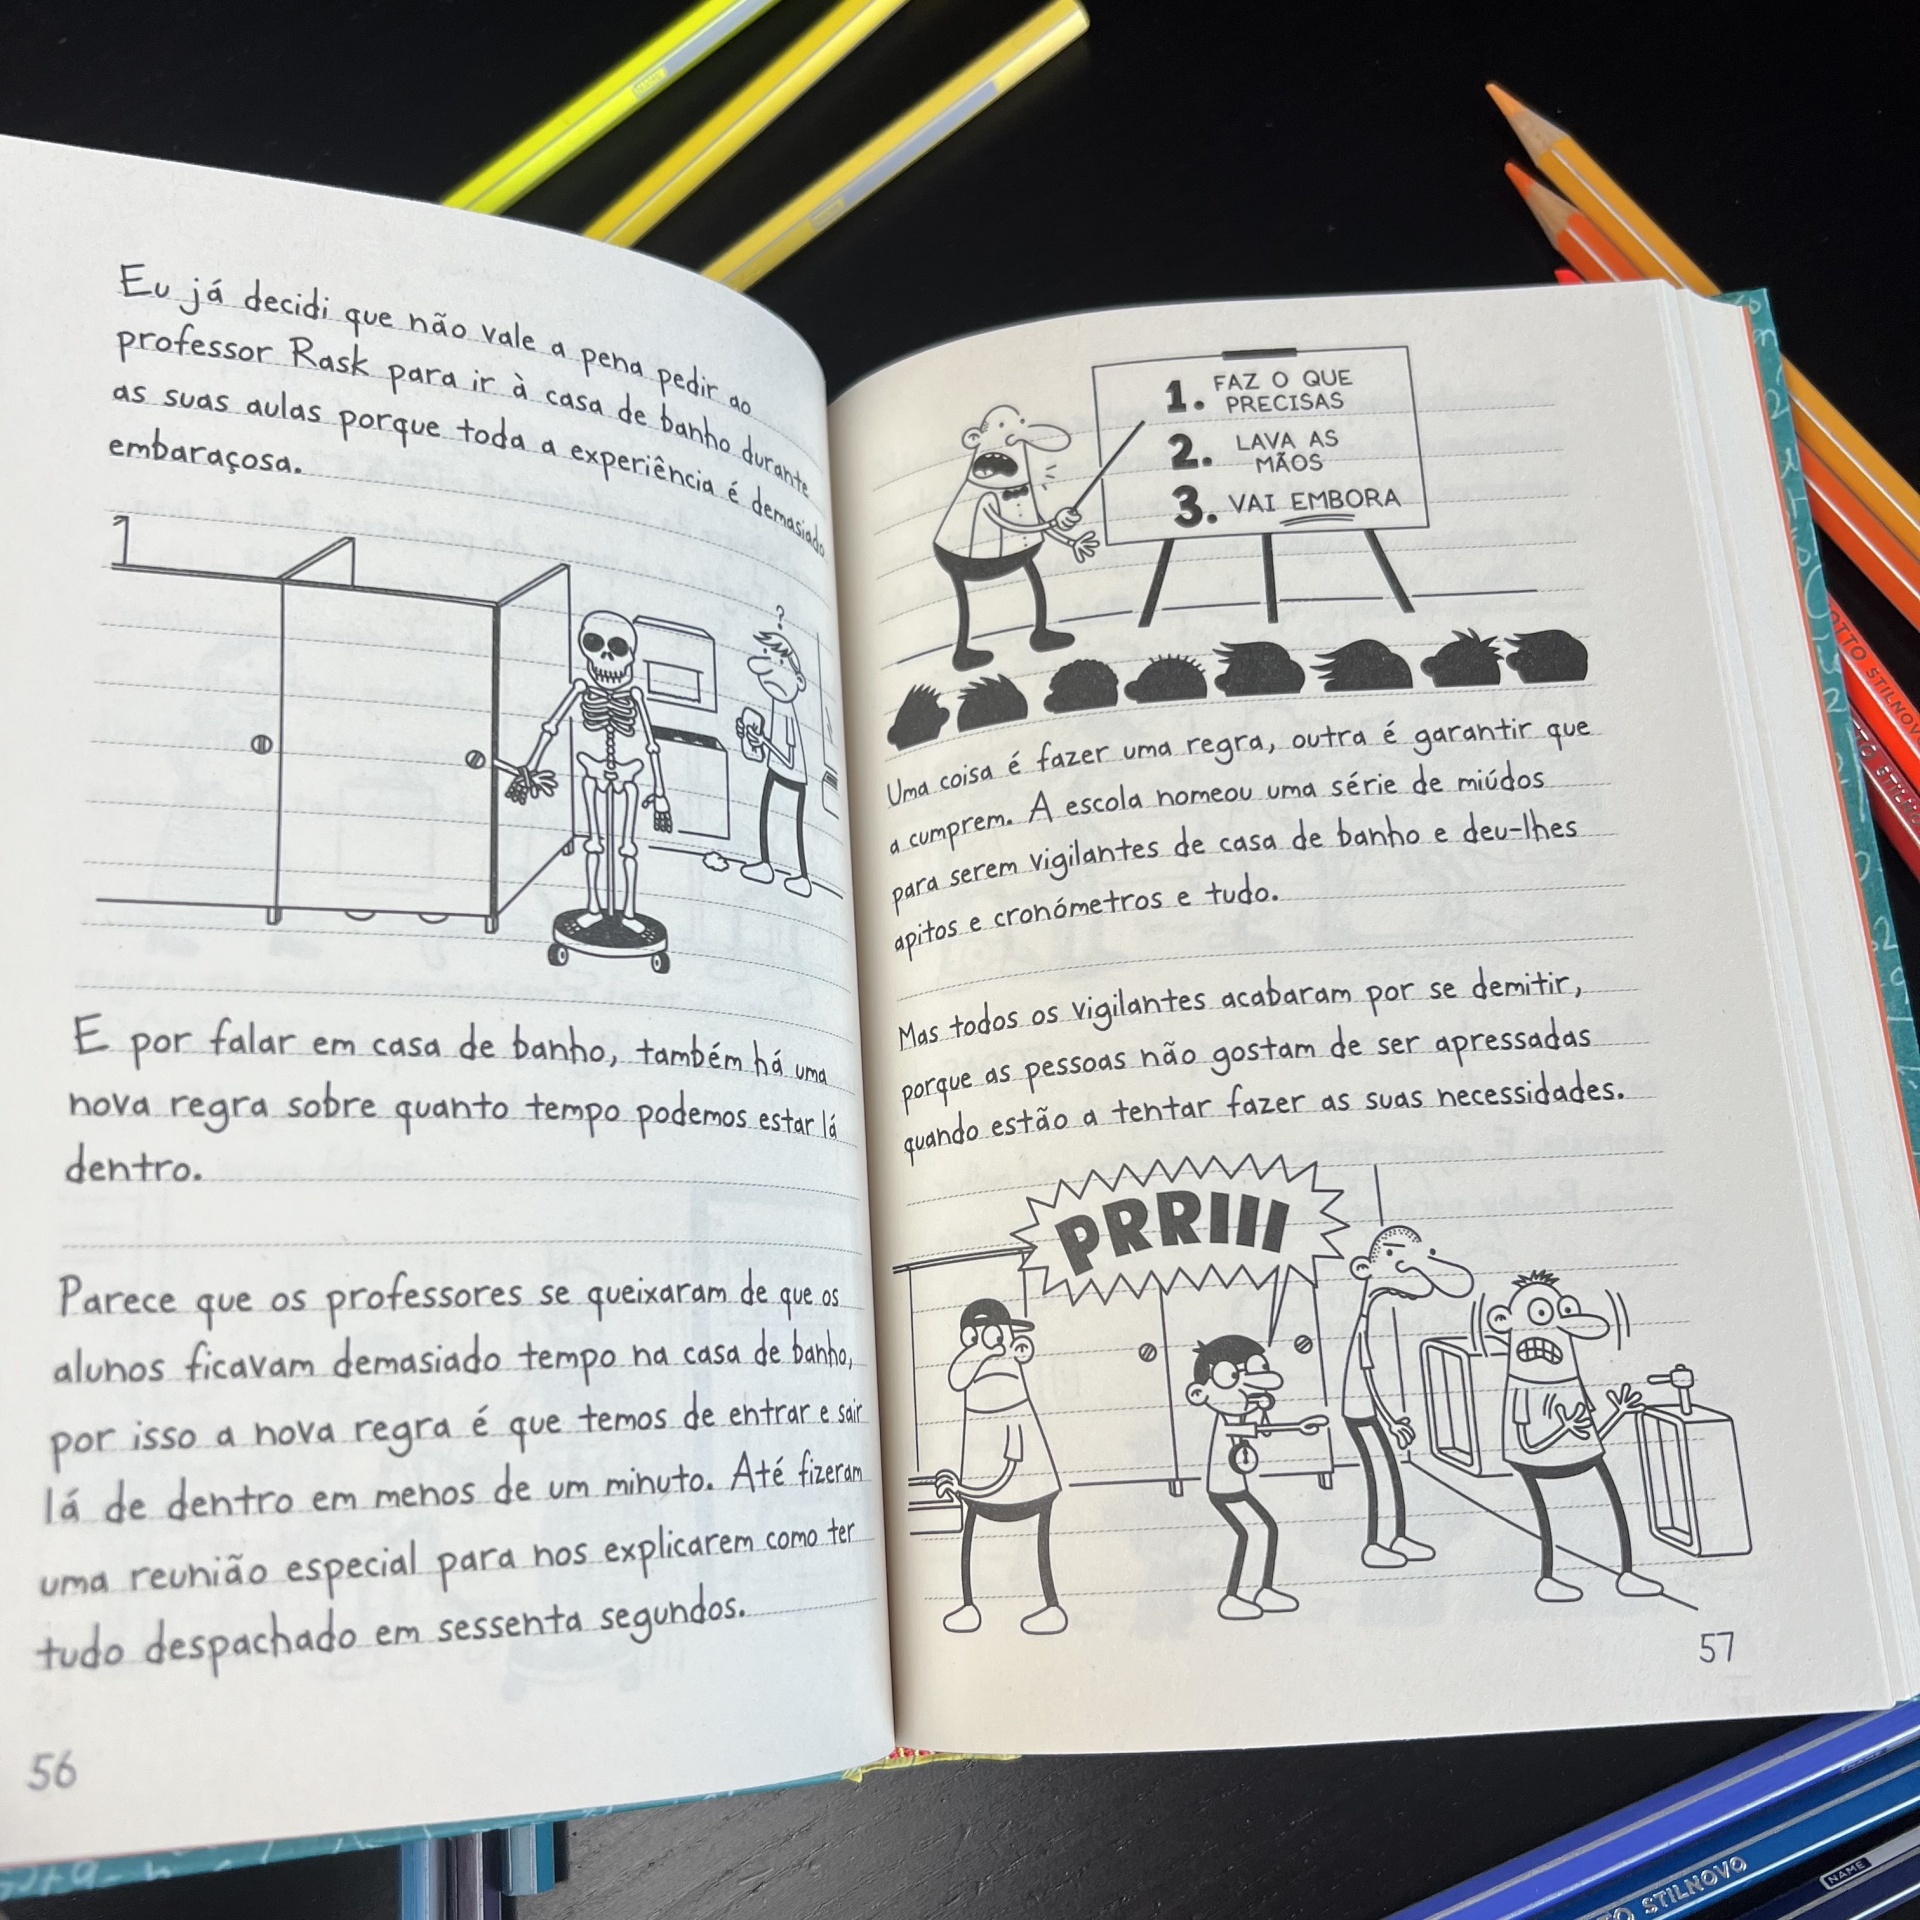 Eu já decidi que não vale a pena pedir ao
professor Rask para ir à casa de banho durante
as suas aulas porque toda a experiência é demasiado
embaraçosa.
?
E por falar em casa de banho, também há uma
nova regra sobre quanto tempo podemos estar lá
dentro.
Parece que os professores se queixaram de que os
alunos ficavam demasiado tempo na casa de banho,
por isso a nova regra é que temos de entrar e sair
lá de dentro em menos de um minuto. Até fizeram
uma reunião especial para nos explicarem como ter
tudo despachado em sessenta segundos.
56
1. FAZ O QUE
PRECISAS
2. LAVA AS
MÃOS
3. VAI EMBORA
Uma coisa é fazer uma regra, outra é garantir que
a cumprem. A escola nomeou uma série de miúdos
para serem vigilantes de casa de banho e deu-lhes
apitos e cronómetros e tudo.
Mas todos os vigilantes acabaram por se demitir,
porque as pessoas não gostam de ser apressadas
quando estão a tentar fazer as suas necessidades.
PRRIII
57
OTTO STILNOVO
STILNOVO
NAME